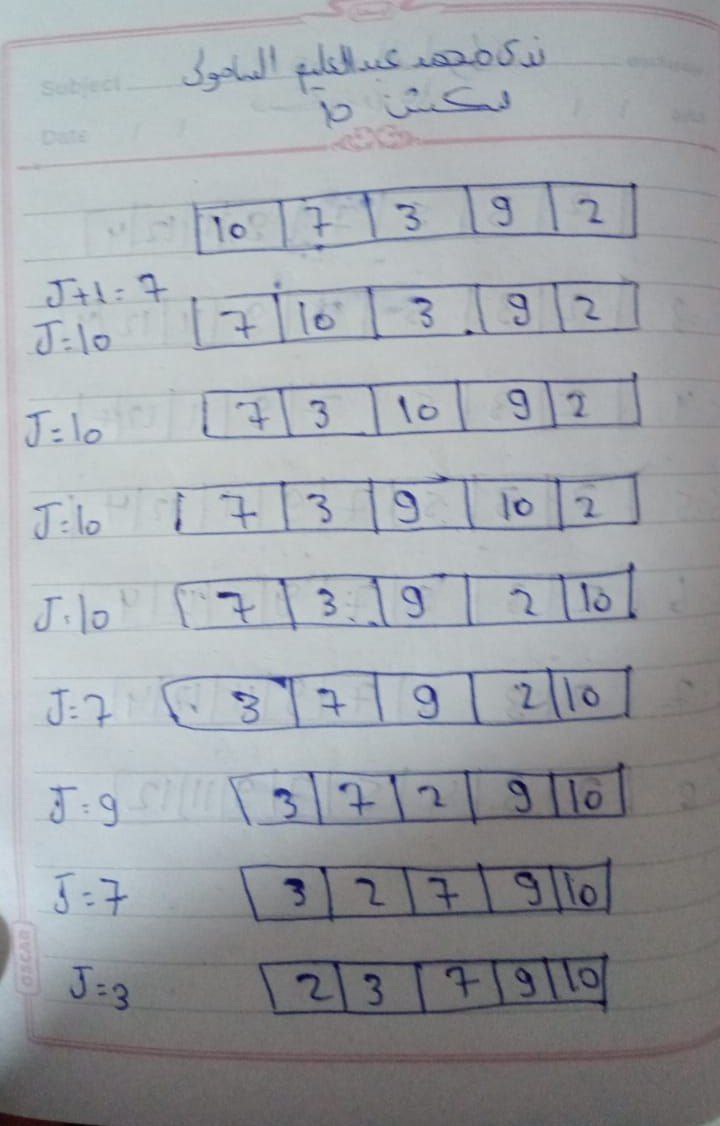 Subject
محمد عبد العليم
Date
سكشن
10 7 3 9 2
J+1=7
J=10 7 10 3 9 2
J=10 7 3 10 9 2
J=10 7 3 9 10 2
J=10 7 3 9 2 10
J=7 3 7 9 2 10
J=9 3 7 2 9 10
J=7 3 2 7 9 10
J=3 2 3 7 9 10
OSCAR